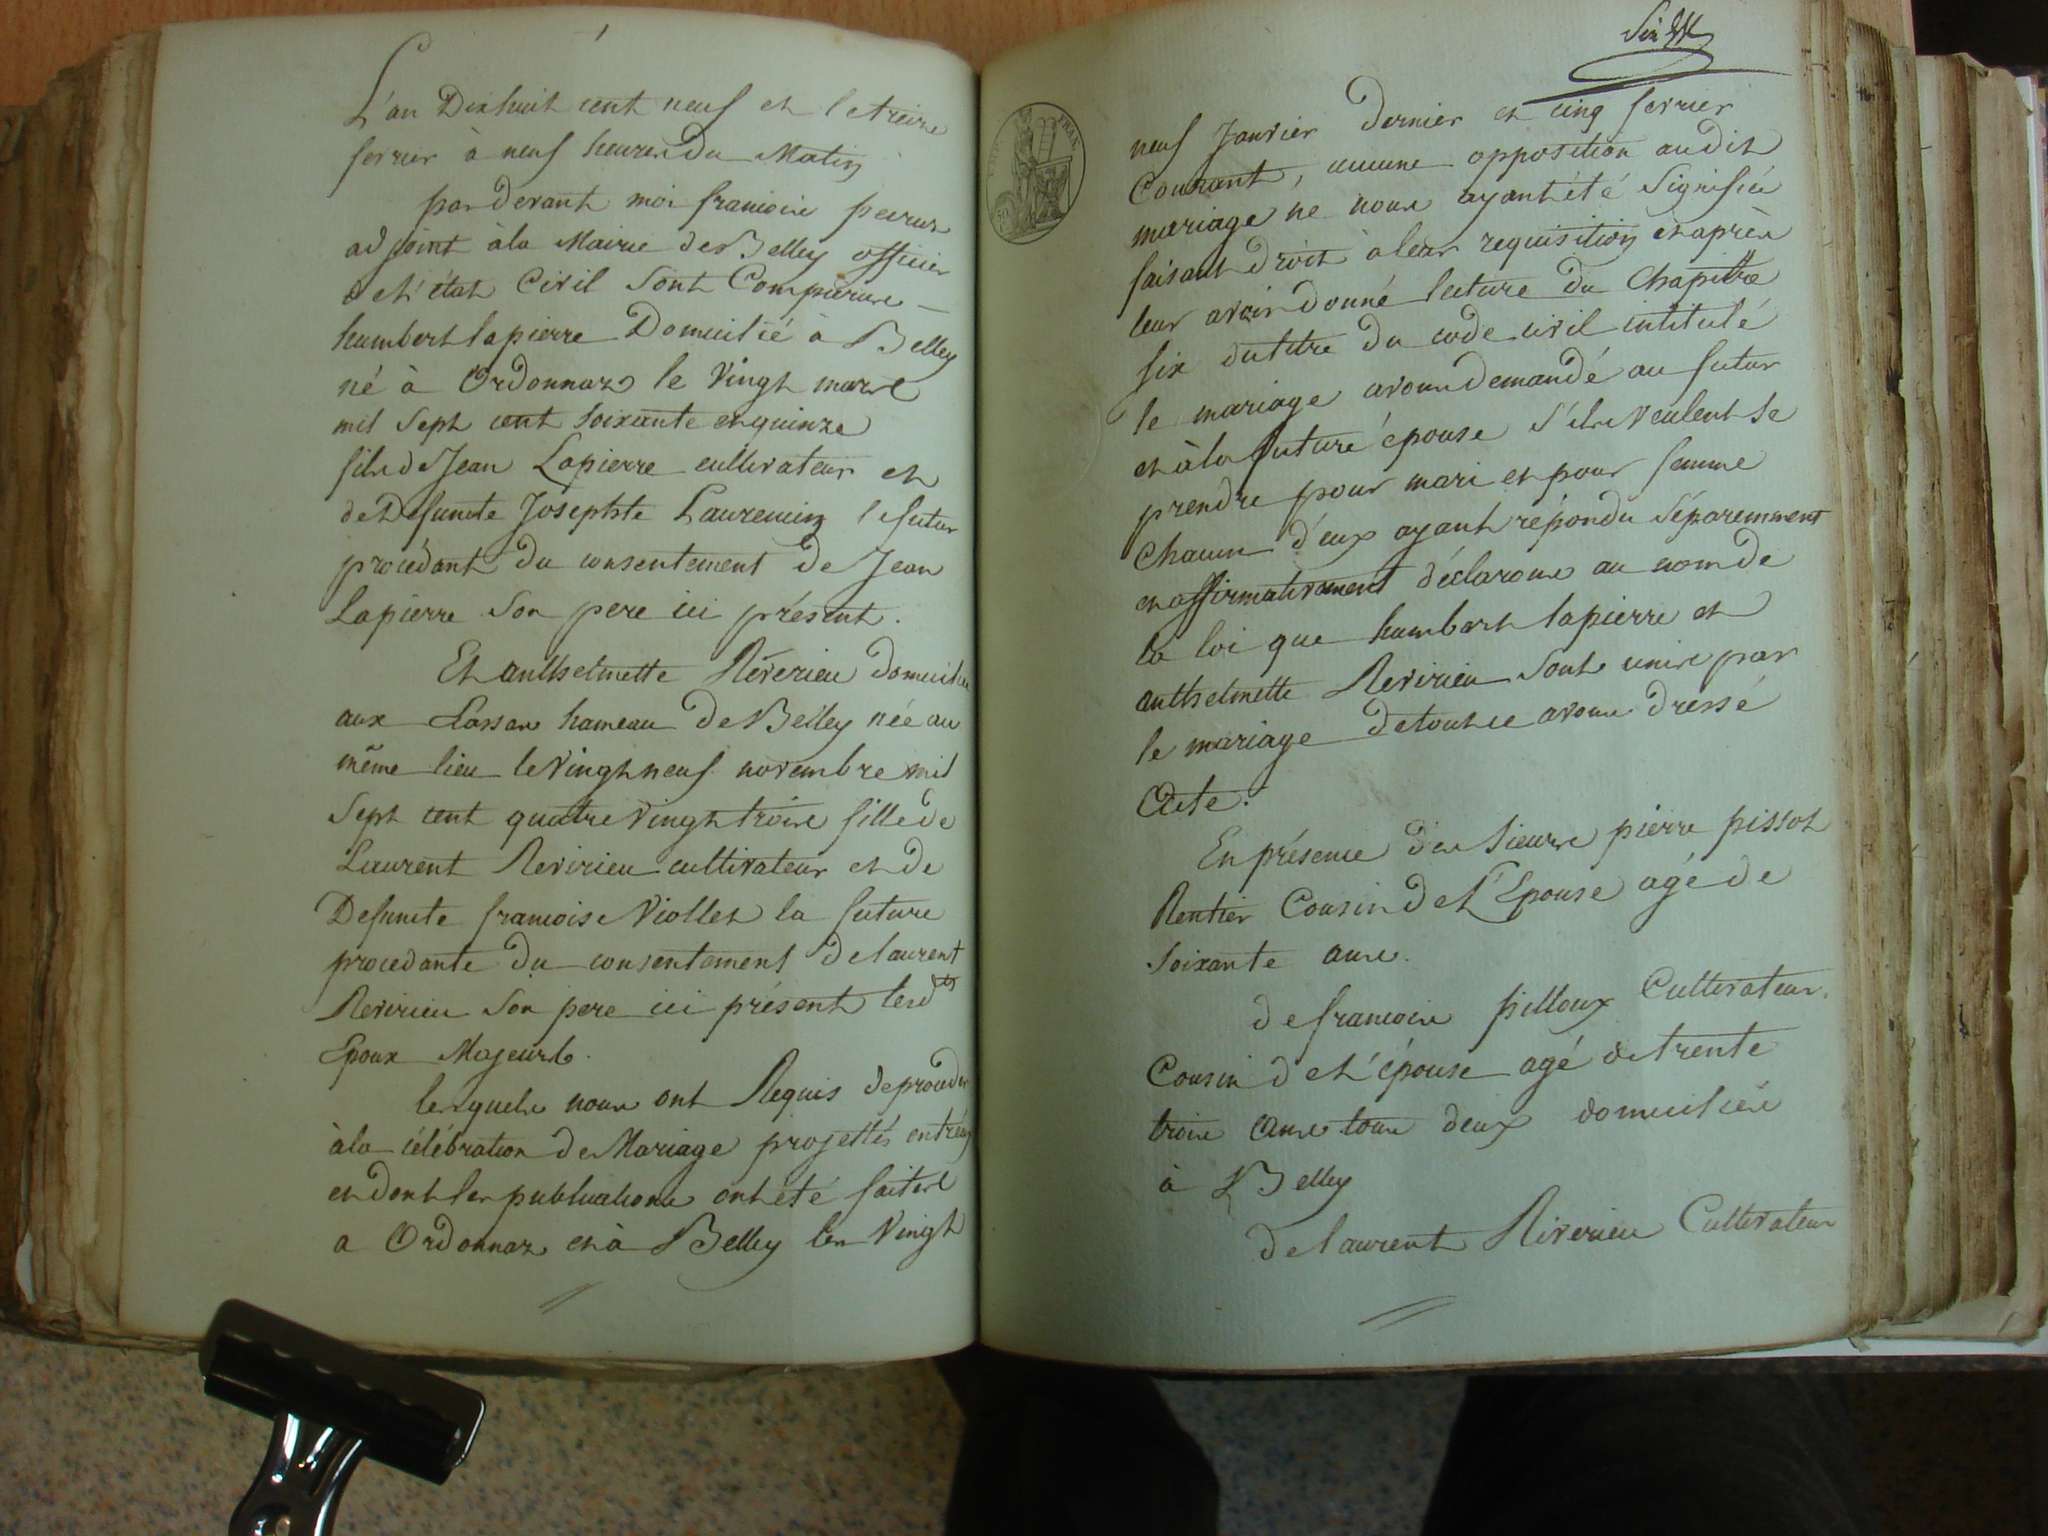 L'an Dix huit cent neuf et le treize
fevrier à neuf heures du Matin
par devant moi francois
adjoint à la Mairie de Belley officier
de l'état Civil Sont Comparus
humbert lapierre Domicilié à Belley
né à Ordonnaz le Vingt mars
mil Sept cent Soixante et quinze
fils de Jean Lapierre cultivateur et
de Defuncte Josephte Laurencin le futur
procédant du consentement de Jean
Lapierre Son pere ici présent.
Et anthelmette Révérieu domiciliée
aux Lassas hameau de Belley née au
même lieu le Vingt neuf novembre mil
Sept cent quatre Vingt trois fille de
Laurent Revirieu cultivateur et de
Defuncte francoise Viollet la future
procedante du consentement de laurent
Revirieu Son pere ici présent lesdts
Epoux Majeurs.
lesquels nous ont Requis de proceder
à la célébration de Mariage projettés entr'eux
et dont les publications ont été faites
a Ordonnaz et à Belley les Vingt
Six
neuf Janvier dernier et cinq fevrier
Courant, aucune opposition audit
mariage ne nous ayant été Signifiée
faisant droit à leur requisition et après
leur avoir donné lecture du Chapitre
six du titre du code civil intitulé
le mariage avons demandé au futur
et à la future épouse s'ils veulent se
prendre pour mari et pour femme
chacun d'eux ayant répondu Séparemment
et affirmativement déclarons au nom de
la loi que humbert lapierre et
anthelmette Revirieu Sont unis par
le mariage de tout ce avons dressé
Acte.
En présence des Sieurs pierre pissot
Rentier Cousin de L'Epouse agé de
Soixante ans.
de francois pilloux Cultivateur.
Cousin de l'épouse agé de trente
trois ans tous deux domiciliés
à Belley
de laurent Rivérieu Cultivateur